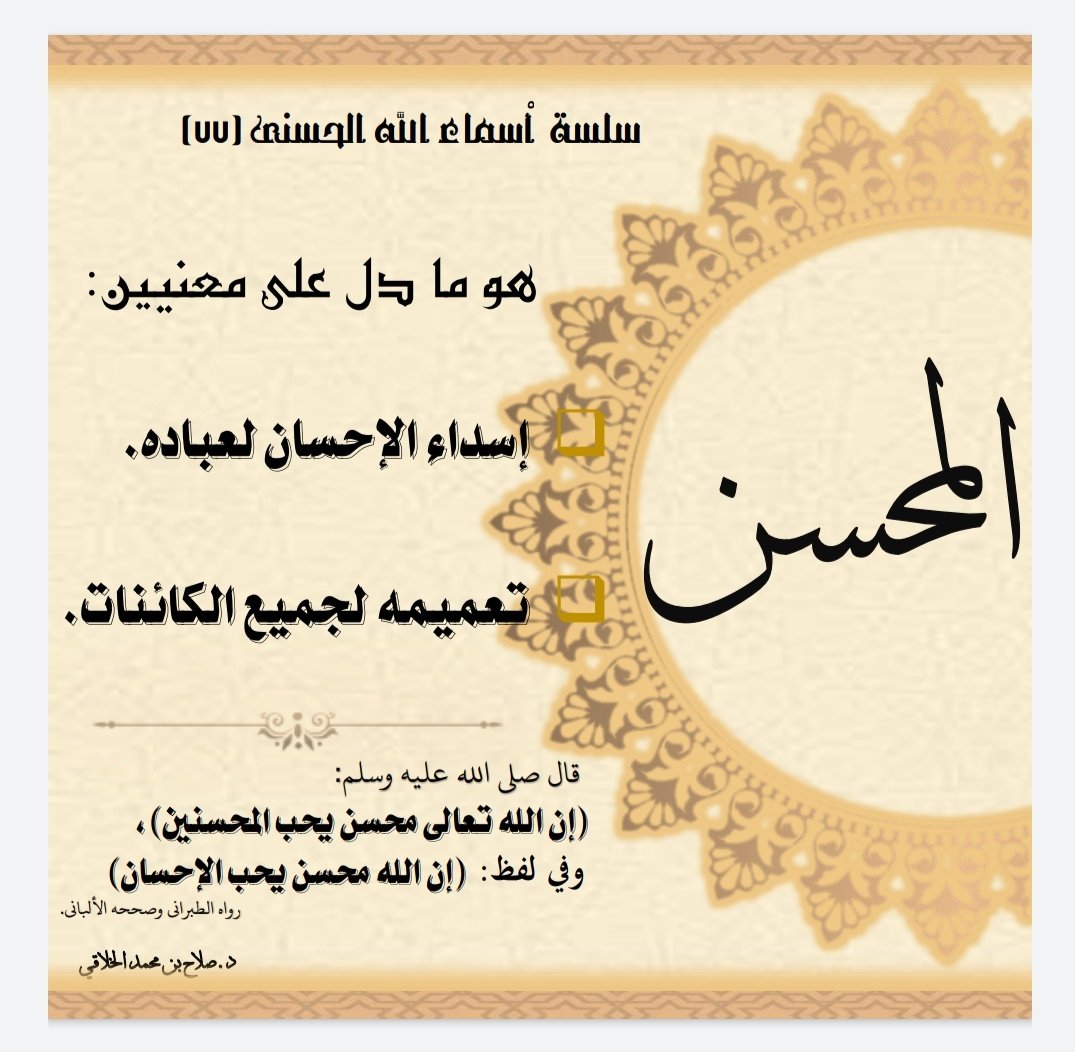 سلسة أسماء الله الحسنى (٧٧)
المحسن
هو ما دل على معنيين:
إسداء الإحسان لعباده.
تعميمه لجميع الكائنات.
قال صلى الله عليه وسلم:
(إن الله تعالى محسن يحب المحسنين)،
وفي لفظ: (إن الله محسن يحب الإحسان)
رواه الطبراني وصححه الألباني.
د.صلاح بن محمد الخلاقي